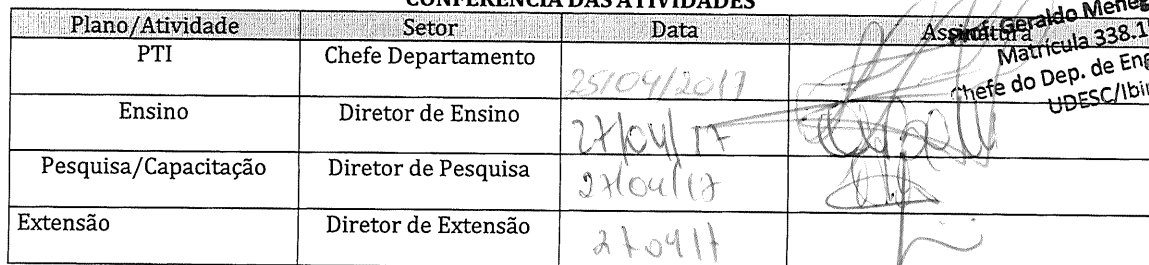 CONFERÊNCIA DAS ATIVIDADES
Plano/Atividade Setor Data Assinatura
PTI Chefe Departamento 25/04/2017
Ensino Diretor de Ensino 27/04/17
Pesquisa/Capacitação Diretor de Pesquisa 27/04/17
Extensão Diretor de Extensão 270417
Prof. Geraldo
Matrícula 338.1
Chefe do Dep. de Eng
UDESC/Ibir